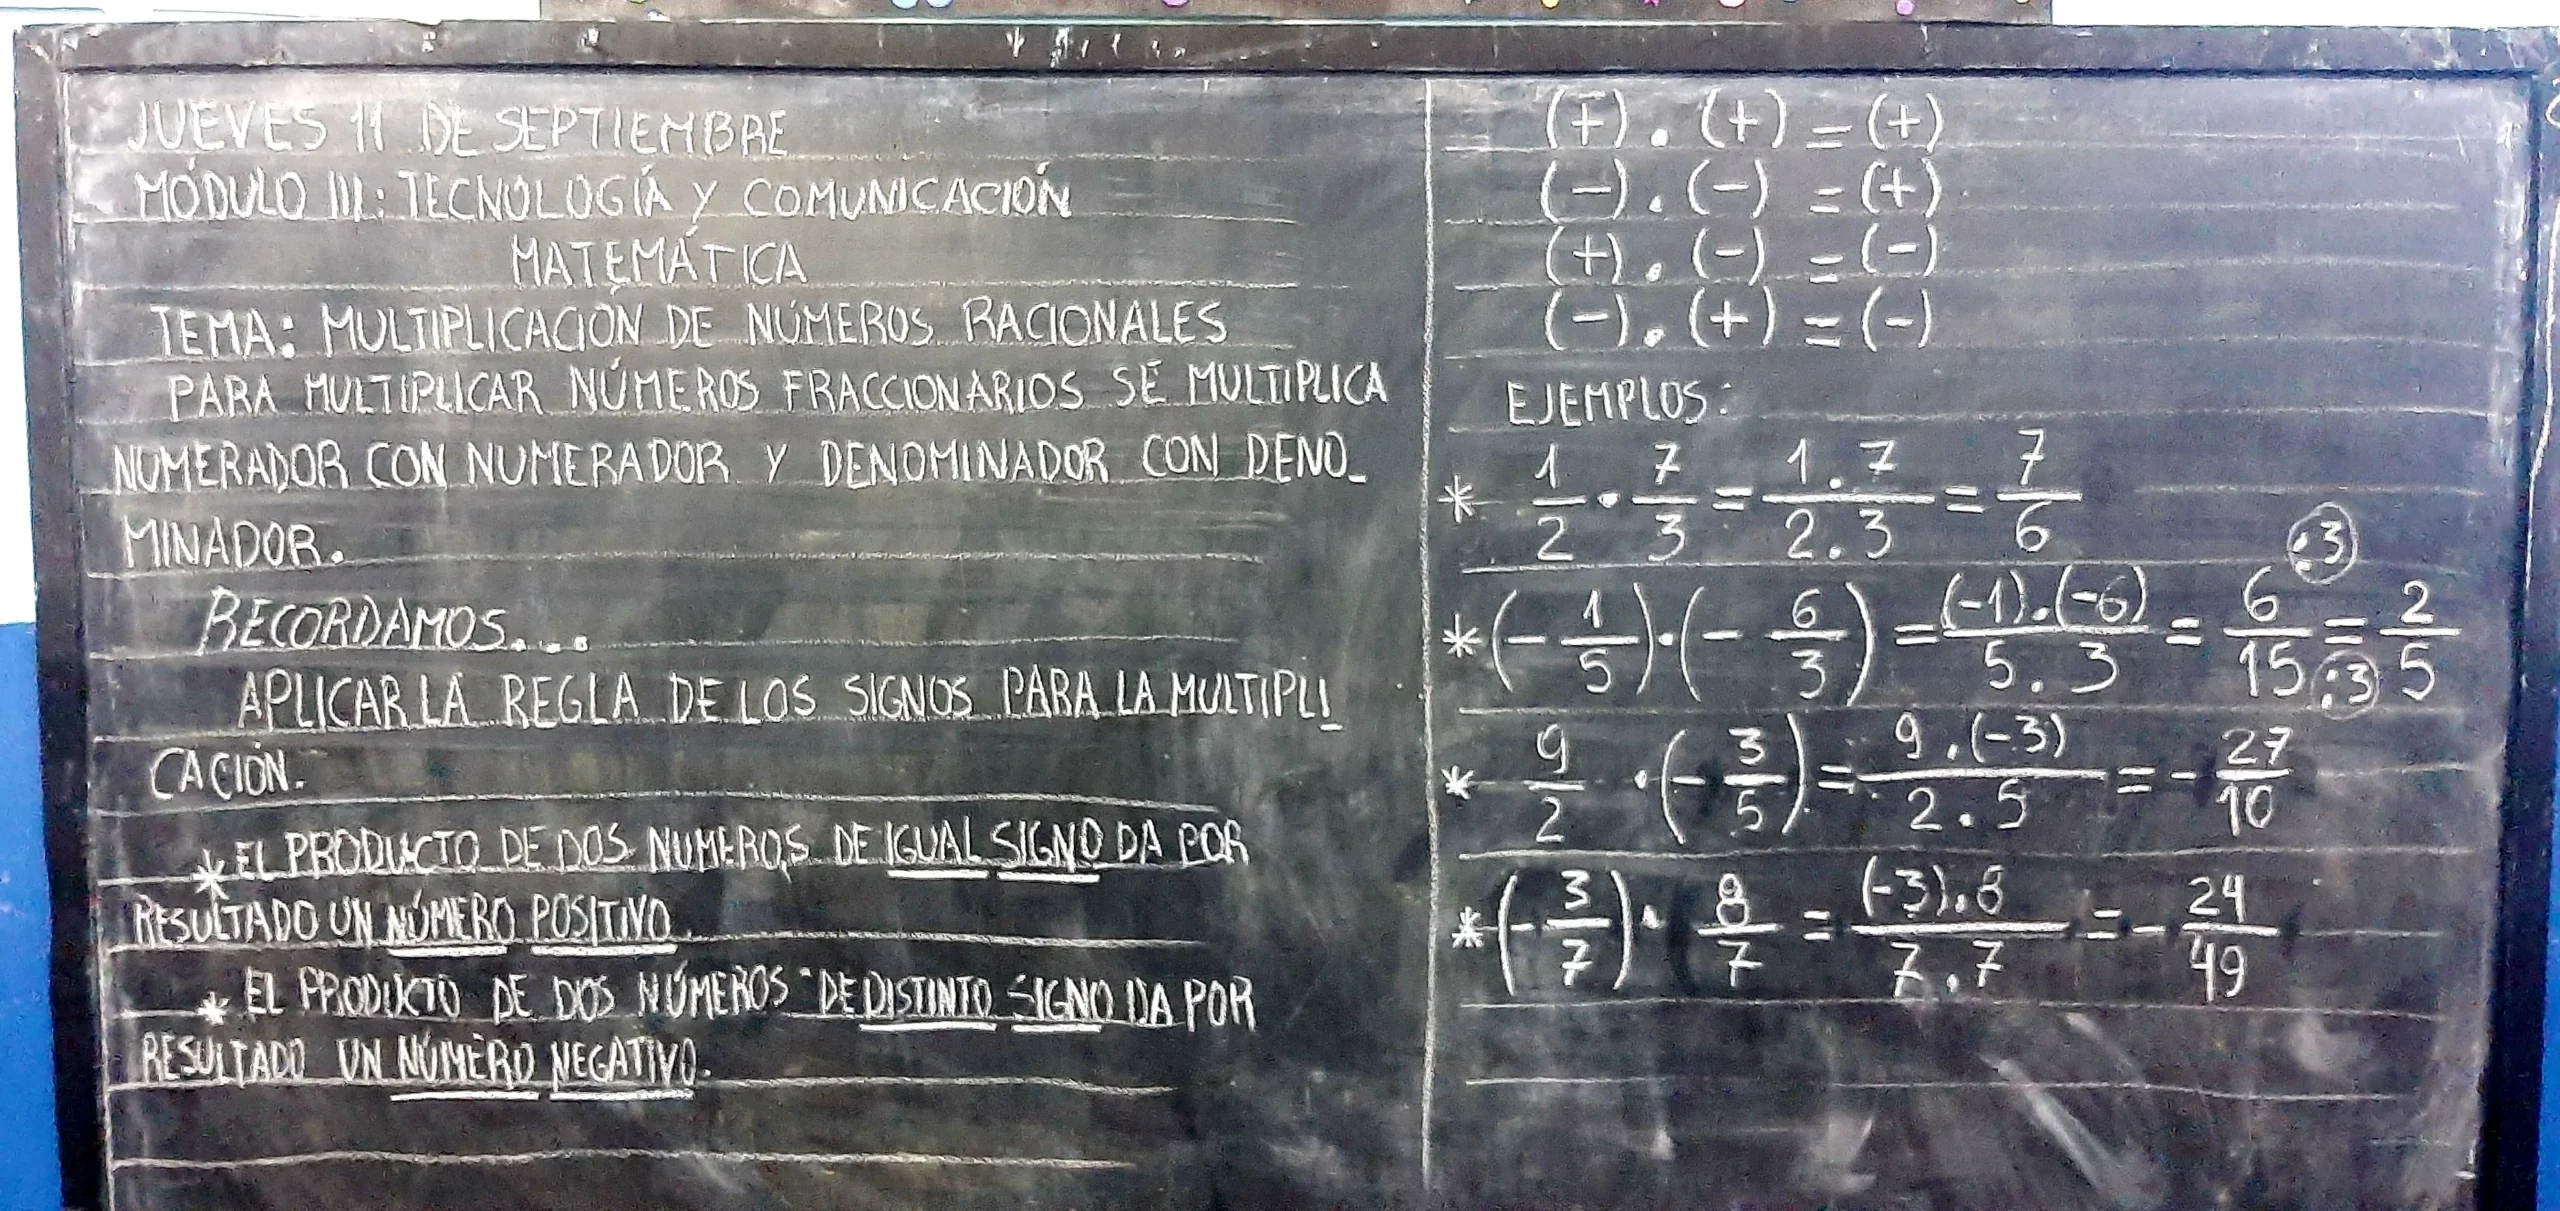 JUEVES 11 DE SEPTIEMBRE
MÓDULO III: TECNOLOGÍA Y COMUNICACIÓN
MATEMÁTICA
TEMA: MULTIPLICACIÓN DE NÚMEROS RACIONALES
PARA MULTIPLICAR NÚMEROS FRACCIONARIOS SE MULTIPLICA
NUMERADOR CON NUMERADOR Y DENOMINADOR CON DENO_
MINADOR.
RECORDAMOS...
APLICAR LA REGLA DE LOS SIGNOS PARA LA MULTIPLI_
CACIÓN.
* EL PRODUCTO DE DOS NUMEROS DE IGUAL SIGNO DA POR
RESULTADO UN NÚMERO POSITIVO.
* EL PRODUCTO DE DOS NÚMEROS DE DISTINTO SIGNO DA POR
RESULTADO UN NÚMERO NEGATIVO.
(+) . (+) = (+)
(-) . (-) = (+)
(+) . (-) = (-)
(-) . (+) = (-)
EJEMPLOS:
* 1/2 . 7/3 = 1.7/2.3 = 7/6
* (- 1/5) . (- 6/3) = (-1).(-6)/5.3 = 6 :3/15 :3 = 2/5
* 9/2 . (- 3/5) = 9.(-3)/2.5 = - 27/10
* (- 3/7) . 8/7 = (-3).8/7.7 = - 24/49